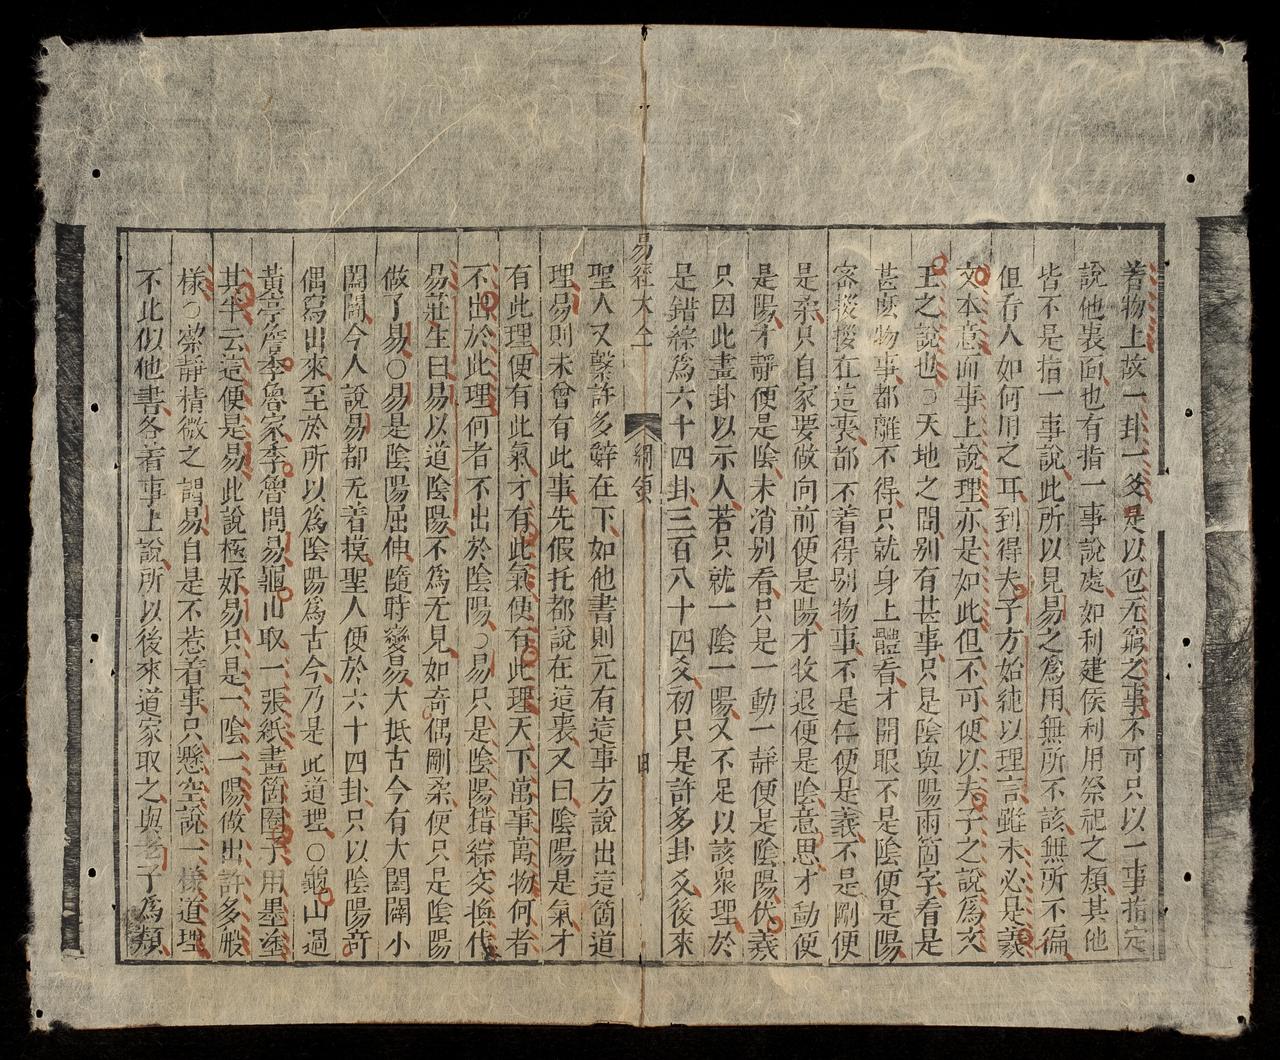 著物上故一卦一爻是以包无窮之事不可只以一事指定
說他裏面也有指一事說處如利建侯利用祭祀之類其他
皆不是指一事說此所以見易之爲用無所不該無所不徧
但看人如何用之耳到得夫子方始純以理言雖未必是羲
文本意而事上說理亦是如此但不可便以夫子之說爲文
王之說也○天地之間別有甚事只是陰與陽兩箇字看是
甚麼物事都離不得只就身上體看才開眼不是陰便是陽
密拶拶在這裏都不着得別物事不是仁便是義不是剛便
是柔只自家要做向前便是陽才收退便是陰意思才動便
是陽才靜便是陰未消別看只是一動一靜便是陰陽伏羲
只因此畫卦以示人若只就一陰一陽又不足以該衆理於
是錯綜爲六十四卦三百八十四爻初只是許多卦爻後來
易經大全 綱領 四
聖人又繫許多辭在下如他書則元有這事方說出這箇道
理易則未曾有此事先假托都說在這裏又曰陰陽是氣才
有此理便有此氣才有此氣便有此理天下萬事萬物何者
不出於此理何者不出於陰陽○易只是陰陽錯綜交換代
易莊生曰易以道陰陽不爲无見如奇偶剛柔便只是陰陽
做了易○易是陰陽屈伸隨時變易大抵古今有大闔闢小
闔闢今人說易都无着摸聖人便於六十四卦只以陰陽奇
偶寫出來至於所以爲陰陽爲古今乃是此道理○龜山過
黃亭詹季魯家季魯問易龜山取一張紙畫箇圈子用墨塗
其半云這便是易此說極好易只是一陰一陽做出許多般
樣○潔靜精微之謂易自是不惹着事只懸空說一樣道理
不比似他書各着事上說所以後來道家取之與老子爲類